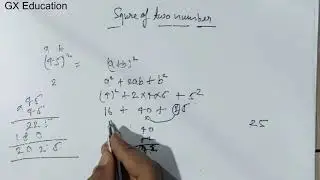 GX Education
Squre of two number
a b
(45)² = (a+b)²
2 a² + 2ab + b²
45 (4)² + 2×4×5 + 5²
×45 16 + 40 + 25
225
180 40
2025
25